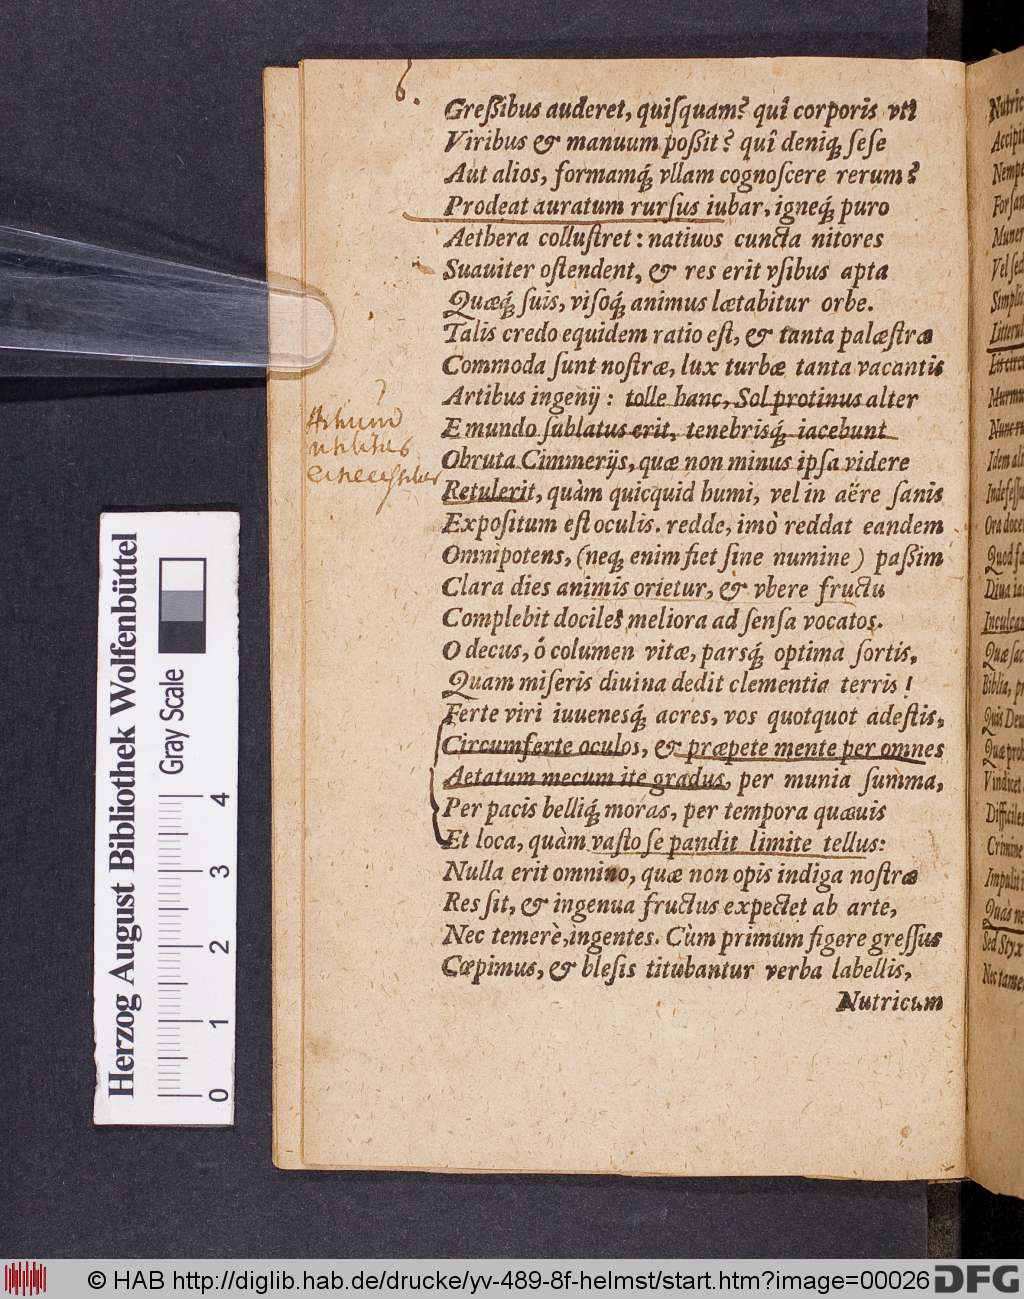 6.
Greſſibus auderet, quiſquam? quî corporis vti
Viribus & manuum poßit? quî deniq; ſeſe
Aut alios, formamq́; vllam cognoſcere rerum?
Prodeat auratum rurſus iubar, igneq́; puro
Aethera colluſtret: natiuos cuncta nitores
Suauiter oſtendent, & res erit vſibus apta
Quæq́; ſuis, viſoq́; animus lætabitur orbe.
Talis credo equidem ratio eſt, & tanta palæſtræ
Commoda ſunt noſtræ, lux turbæ tanta vacantis
Artibus ingenij: tolle hanc, Sol protinus alter
E mundo ſublatus erit, tenebrisq́; iacebunt
Obruta Cimmerijs, quæ non minus ipſa videre
Retulerit, quàm quicquid humi, vel in aëre ſanis
Expoſitum eſt oculis. redde, imò reddat eandem
Omnipotens, (neq; enim fiet ſine numine) paßim
Clara dies animis orietur, & vbere fructu
Complebit dociles meliora ad ſenſa vocatos.
O decus, ó columen vitæ, parsq́; optima ſortis,
Quam miſeris diuina dedit clementia terris!
Ferte viri iuuenesq́; acres, vos quotquot adeſtis,
Circumferte oculos, & præpete mente per omnes
Aetatum mecum ite gradus, per munia ſumma,
Per pacis belliq́; moras, per tempora quæuis
Et loca, quàm vaſto ſe pandit limite tellus:
Nulla erit omnino, quæ non opis indiga noſtræ
Res ſit, & ingenua fructus expectet ab arte,
Nec temerè, ingentes. Cùm primum figere greſſus
Cœpimus, & blesis titubantur verba labellis,
Nutricum
Herzog August Bibliothek Wolfenbüttel
Gray Scale
0 1 2 3 4
© HAB http://diglib.hab.de/drucke/yv-489-8f-helmst/start.htm?image=00026
DFG